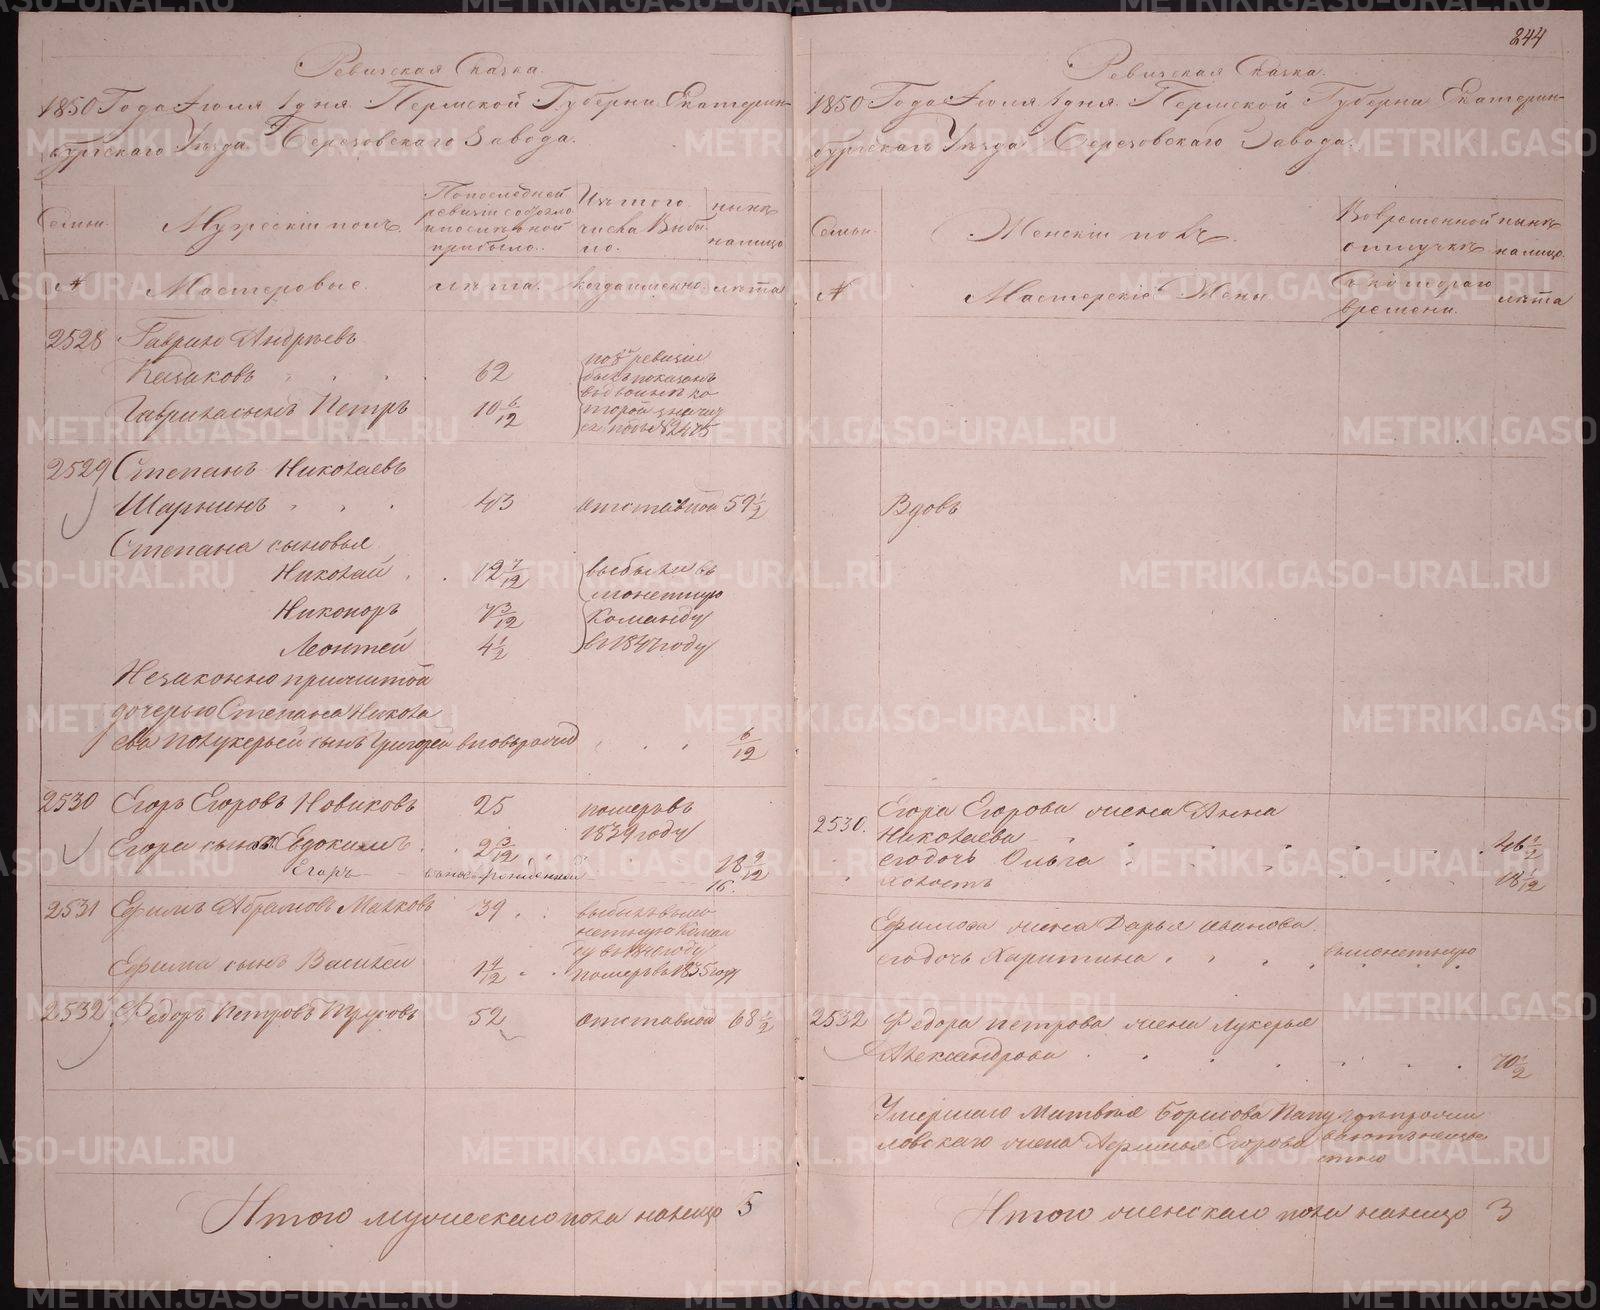 244
Ревизская Сказка.
1850 Года Июля 1 дня. Пермской Губернии Екатерин-
бургскаго Уезда Березовскаго Завода.
Семьи.
Мужескiй полъ.
По последней
ревизiи состояло
и после оной
прибыло.
Изъ того
числа Выбы
ло.
ныне
налицо
№
Мастеровые.
лета.
когда именно.
лета
2528
Гаврило Андреевъ
Казаковъ
62
по 8й ревизiи
былъ показанъ
Гаврила сынъ Петръ
10 6/12
2529
Степанъ Николаевъ
43
отставной
59 1/2
Степана сыновья
Николай
12 7/12
выбыли въ
монетную
Никоноръ
7 3/12
команду
Леонтей
4 1/2
в 1841 году
Незаконно прижитой
дочерью Степана Никола
ева Лукерьей сынъ Григорей
6/12
2530
Егоръ Егоровъ Новиковъ
25
померъ въ
1839 году
Егора сынъ Евдокимъ
2 3/12
18 9/12
Егаръ
16
2531
Ефимъ Абрамовъ Малковъ
39
Ефима сынъ Василей
померъ в 1835 году
2532
Федоръ Петровъ Прусовъ
52
отставной
68 1/2
Итого мужескаго пола налицо 5
Ревизская Сказка.
1850 Года Июля 1 дня. Пермской Губернии Екатерин-
бургскаго Уезда Березовскаго Завода.
Семьи.
Женскiй полъ.
Во временной
отлучке
ныне
налицо.
№
Мастерскiе Жены.
Съ котораго
времени.
лета
Вдовъ
2530.
Егора Егорова жена Анна
Николаева
46 1/2
его дочь Ольга
18 1/12
холостъ
Ефимова жена Дарья Иванова
его дочь Харитина
в монетную
2532
Федора Петрова жена Лукерья
Александрова
70 1/2
Умершаго Матвея Борисова Папу
ловскаго жена Афимья Егорова
Итого женскаго пола налицо 3
METRIKI.GASO-URAL.RU